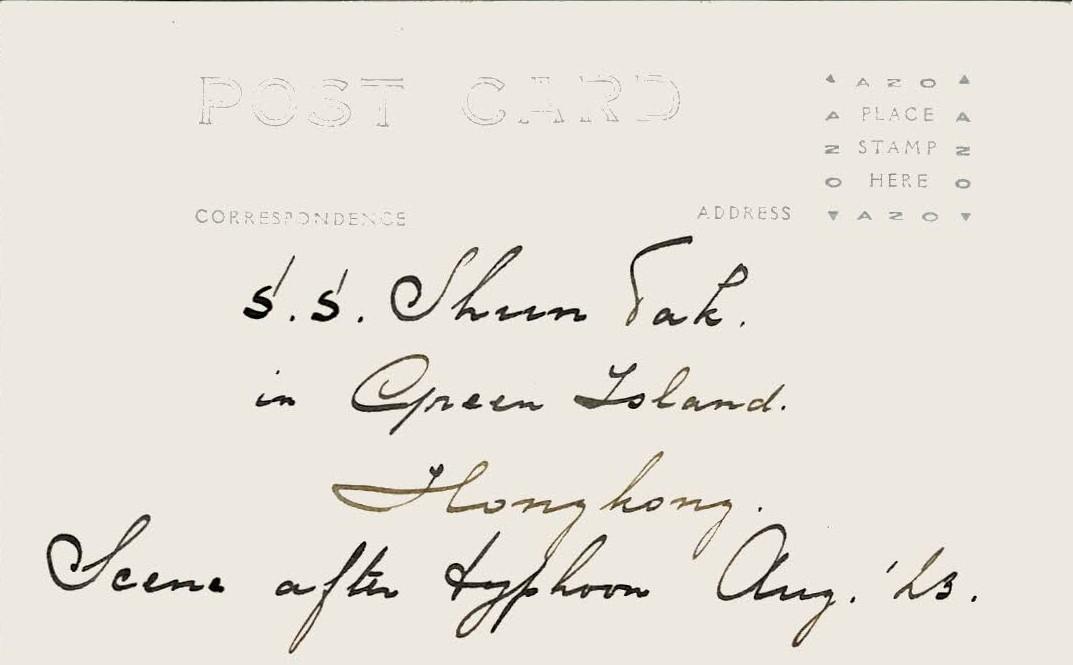 POST CARD
▲ A Z O ▲
A PLACE A
Z STAMP Z
O HERE O
▼ A Z O ▼
CORRESPONDENCE
ADDRESS
S.S. Shun Tak.
in Green Island.
Hongkong.
Scene after typhoon Aug. '23.